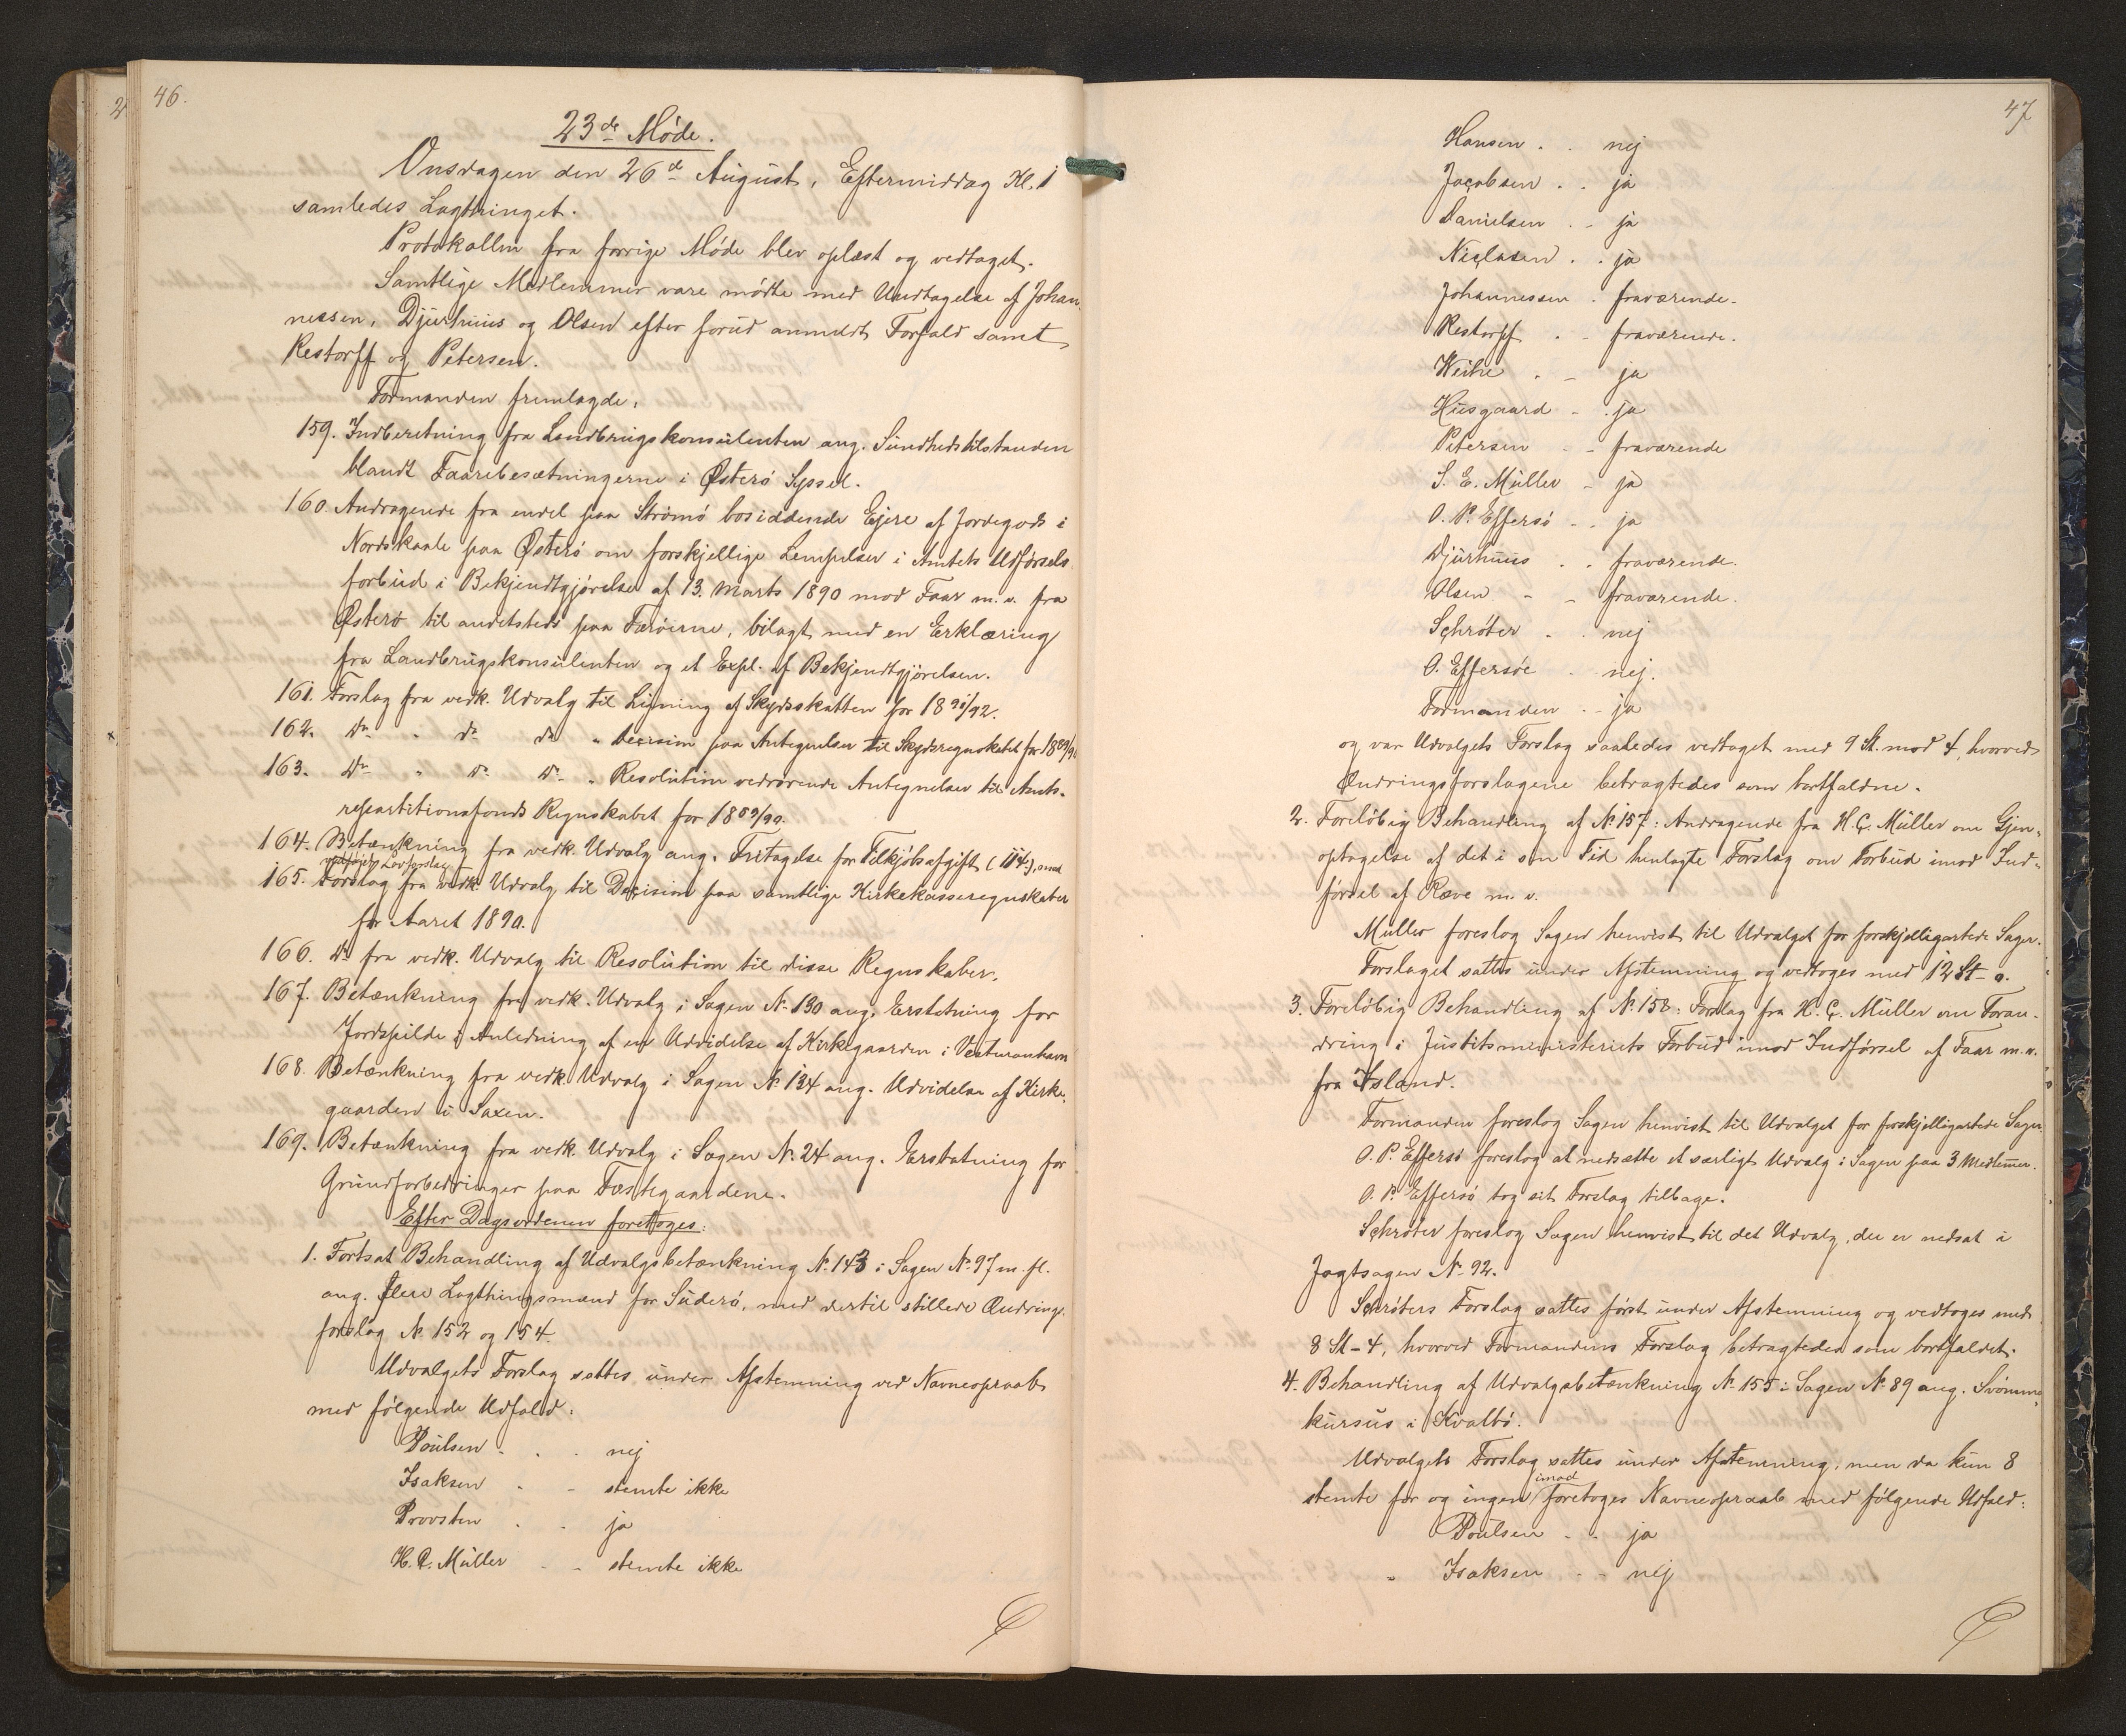 46.
23de Møde.
Onsdagen den 26de August, Eftermiddag Kl. 1
samledes Lagthinget.
Protokollen fra forrige Møde blev oplæst og vedtaget.
Samtlige Medlemmer vare mødte med Undtagelse af Johan-
nessen, Djurhuus og Olsen efter forud anmeldt Forfald samt
Restorff og Petersen.
Formanden fremlagde:
159. Indberetning fra Landbrugskonsulenten ang. Sundhedstilstanden
blandt Faarebesætningerne i Østerø Syssel.
160. Andragende fra endel paa Strømø bosiddende Ejere af Jordegods i
Nordskaale paa Østerø om forskjellige Lempelser i Amtets Udførsels-
forbud i Bekjendtgjørelse af 13. Marts 1890 mod Faar m. v. fra
Østerø til andetsteds paa Færøerne, bilagt med en Erklæring
fra Landbrugskonsulenten og et Expl. af Bekjendtgjørelsen.
161. Forslag fra vedk. Udvalg til Ligning af Skydsskatten for 1891/92.
162. Do " do do " Decision paa Antegnelser til Skydsregnskabet for 1889/90
163. Do " do do " Resolution vedrørende Antegnelser til Amts-
repartitionsfonds Regnskabet for 1889/90.
164. Betænkning fra vedk. Udvalg ang. Fritagelse for Tilkjøbsafgift (114), med
vedføjet Lovforslag
165. Forslag fra vedk. Udvalg til Decision paa samtlige Kirkekasseregnskaber
for Aaret 1890.
166. Do fra vedk. Udvalg til Resolution til disse Regnskaber.
167. Betænkning fra vedk. Udvalg i Sagen No 130 ang. Erstatning for
Jordspilde i Anledning af en Udvidelse af Kirkegaarden i Vestmanhavn
168. Betænkning fra vedk. Udvalg i Sagen No 134 ang. Udvidelse af Kirke-
gaarden i Saxen.
169. Betænkning fra vedk. Udvalg i Sagen No. 24 ang. Erstatning for
Grundforbedringer paa Fæstegaardene.
Efter Dagsordenen foretoges:
1. Fortsat Behandling af Udvalgsbetænkning No. 143 i Sagen No. 97 m. fl.
ang. flere Lagthingsmænd for Suderø, med dertil stillede Ændrings-
forslag No 152 og 154.
Udvalgets Forslag sattes under Afstemning ved Navneopraab
med følgende Udfald:
Poulsen - . . nej
Isaksen - - stemte ikke
Provsten . . ja
H. C. Müller - - stemte ikke
47
Hansen . . nej
Jacobsen . . ja
Danielsen . - ja
Niclasen . . ja
Johannessen . fraværende.
Restorff . - fraværende.
Weihe . - ja
Husgaard - . ja
Petersen - - fraværende
S. E. Müller - ja
O. P. Effersø - . ja
Djurhuus . . fraværende.
Olsen - - fraværende.
Schrøter . . nej
O. Effersøe - nej.
Formanden . - ja
og var Udvalgets Forslag saaledes vedtaget med 9 St. mod 4, hvorved
Ændringsforslagene betragtedes som bortfaldne.
2. Foreløbig Behandling af No 157: Andragende fra H. C. Müller om Gjen-
optagelse af det i sin Tid henlagte Forslag om Forbud imod Ind-
førsel af Ræve m. v.
Müller foreslog Sagen henvist til Udvalget for forskjelligartede Sager.
Forslaget sattes under Afstemning og vedtoges med 12 St - 0.
3. Foreløbig Behandling af No. 158: Forslag fra H. C. Müller om Foran-
dring i Justitsministeriets Forbud imod Indførsel af Faar m. v.
fra Island.
Formanden foreslog Sagen henvist til Udvalget for forskjelligartede Sager.
O. P. Effersø foreslog at nedsætte et særligt Udvalg i Sagen paa 3 Medlemmer.
O. P. Effersø tog sit Forslag tilbage.
Schrøter foreslog Sagen henvist til det Udvalg, der er nedsat i
Jagtsagen No. 92.
Schrøters Forslag sattes først under Afstemning og vedtoges med
8 St - 4, hvorved Formandens Forslag betragtedes som bortfaldet.
4. Behandling af Udvalgsbetænkning No 155 i Sagen No 89 ang. Svømme-
kursus i Kvalbø.
Udvalgets Forslag sattes under Afstemning, men da kun 8
imod
stemte for og ingen foretoges Navneopraab med følgende Udfald:
Poulsen - . ja
" Isaksen - - nej